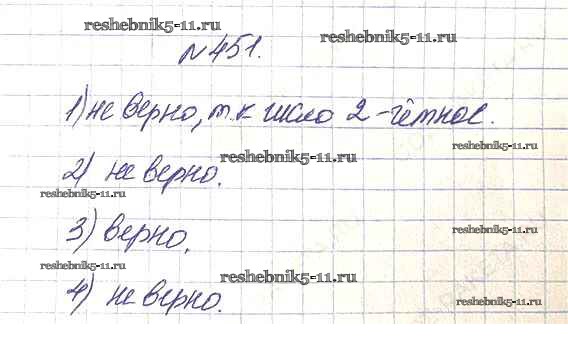 reshebnik5-11.ru
reshebnik5-11.ru
№451.
1) не верно, т.к число 2 -чётное.
reshebnik5-11.ru
reshebnik5-11.ru
2) не верно.
reshebnik5-11.ru
3) верно.
reshebnik5-11.ru
reshebnik5-11.ru
reshebnik5-11.ru
4) не верно.
reshebnik5-11.ru